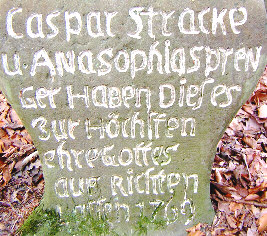 CASPAR STRACKE
U ANASOPHIA SPREN
GER HABEN DIESES
ZUR HÖCHSTEN
EHRE GOTTES
AUF RICHTEN
LASSEN 1766